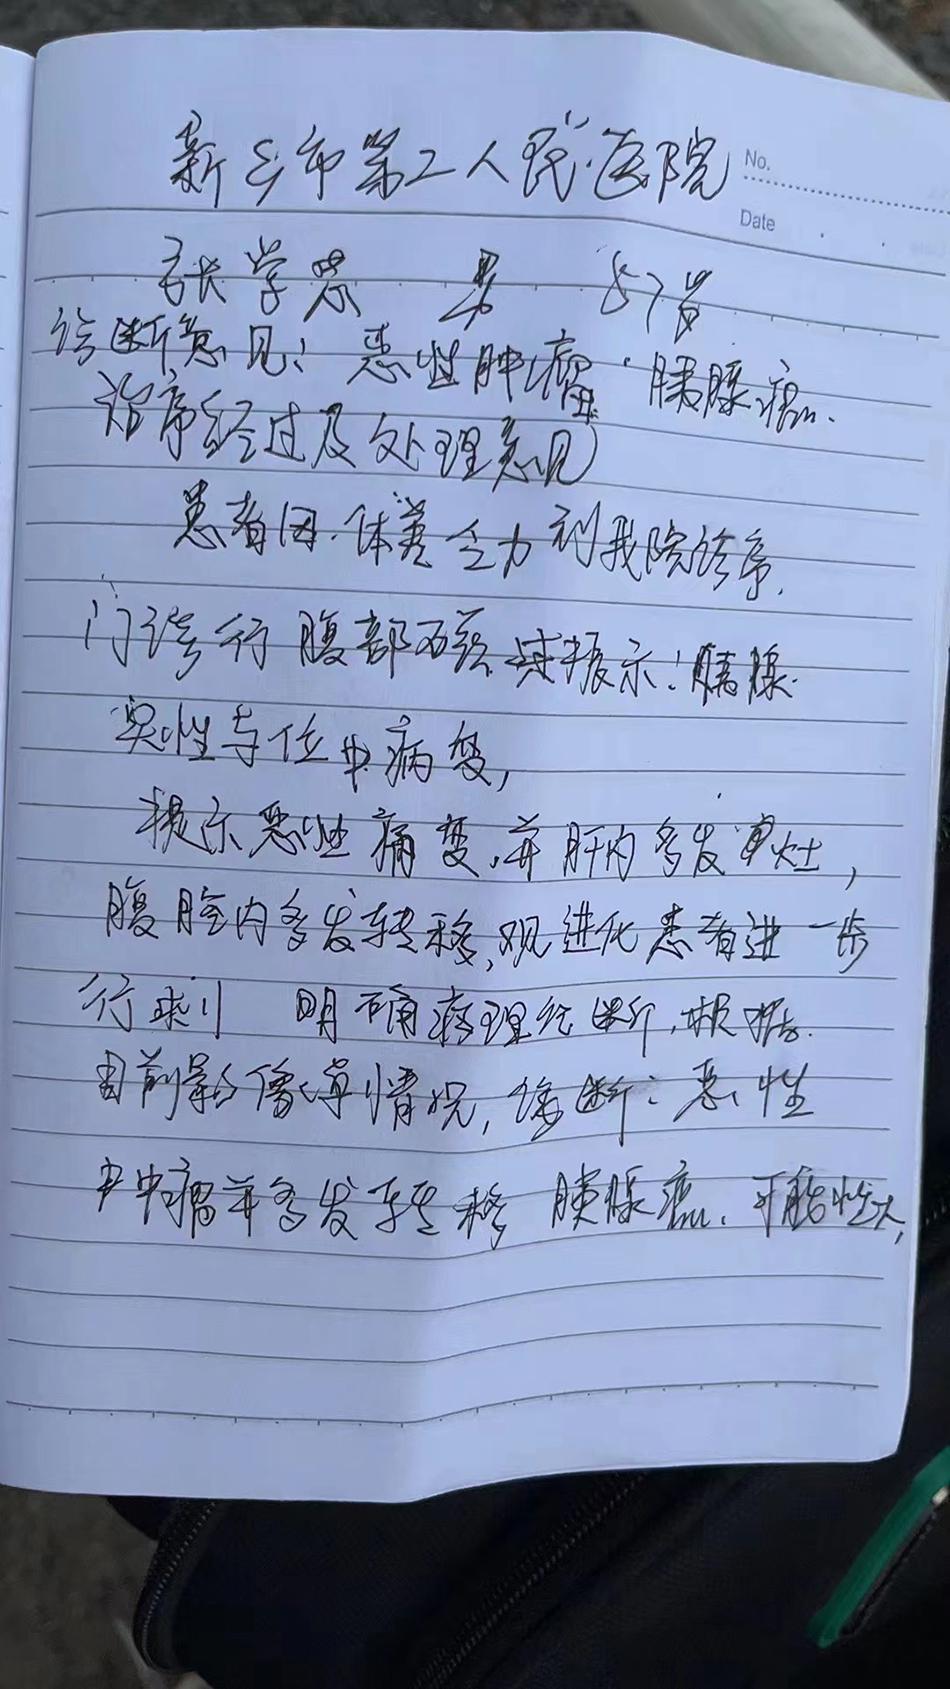 新乡市第二人民医院
No.
Date
张学忠 男 57岁
诊断意见：恶性肿瘤 胰腺癌.
治疗经过及处理意见
患者因.体差乏力到我院诊疗.
门诊行腹部 示：胰腺.
实性占位 病变，
提示恶性病变.并肝内多发 灶，
腹腔内多发转移, 患者进一步
行 明确病理诊断.根据.
目前影像 情况，诊断：恶性
肿瘤并多发转移 胰腺癌.可能性大,